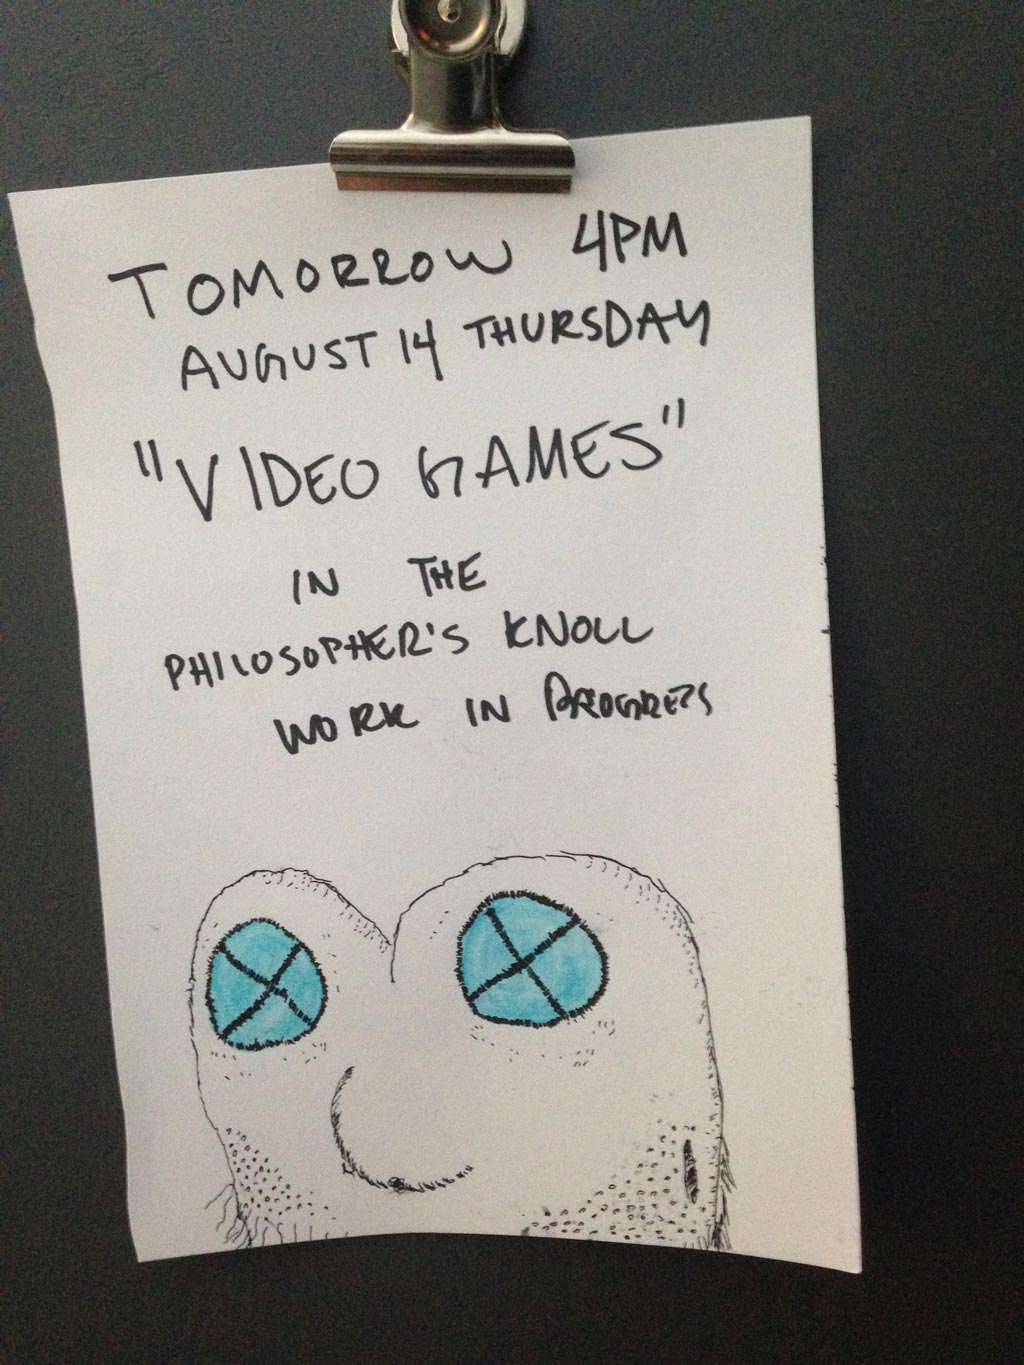 TOMORROW 4PM
AUGUST 14 THURSDAY
"VIDEO GAMES"
IN THE
PHILOSOPHER'S KNOLL
WORK IN PROGRESS